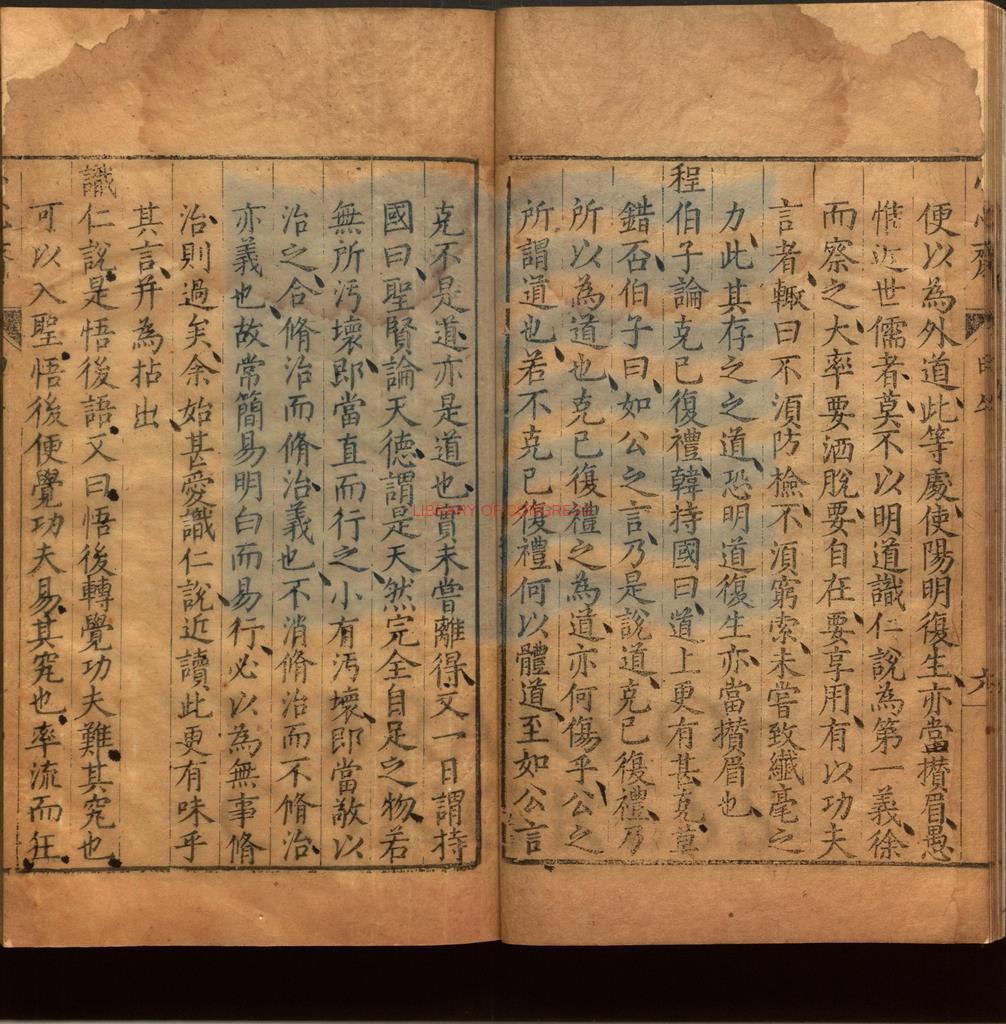 便以為外道此等處使陽明復生亦當攅眉愚
惟近世儒者莫不以明道識仁說為第一義徐
而察之大率要洒脫要自在要享用有以功夫
言者輙曰不湏防檢不湏窮索未嘗致纎毫之
力此其存之之道恐明道復生亦當攅眉也
程伯子論克己復禮韓持國曰道上更有甚克莫
錯否伯子曰如公之言乃是說道克己復禮乃
所以為道也克己復禮之為道亦何傷乎公之
所謂道也若不克己復禮何以體道至如公言
克不是道亦是道也實未嘗離得又一日謂持
國曰聖賢論天德謂是天然完全自足之物若
無所汚壞即當直而行之小有汚壞即當敬以
治之合脩治而脩治義也不消脩治而不脩治
亦義也故常簡易明白而易行必以為無事脩
治則過矣余始甚愛識仁說近讀此更有味乎
其言并為拈出
識仁說是悟後語又曰悟後轉覺功夫難其究也
可以入聖悟後便覺功夫易其究也率流而狂
LIBRARY OF CONGRESS